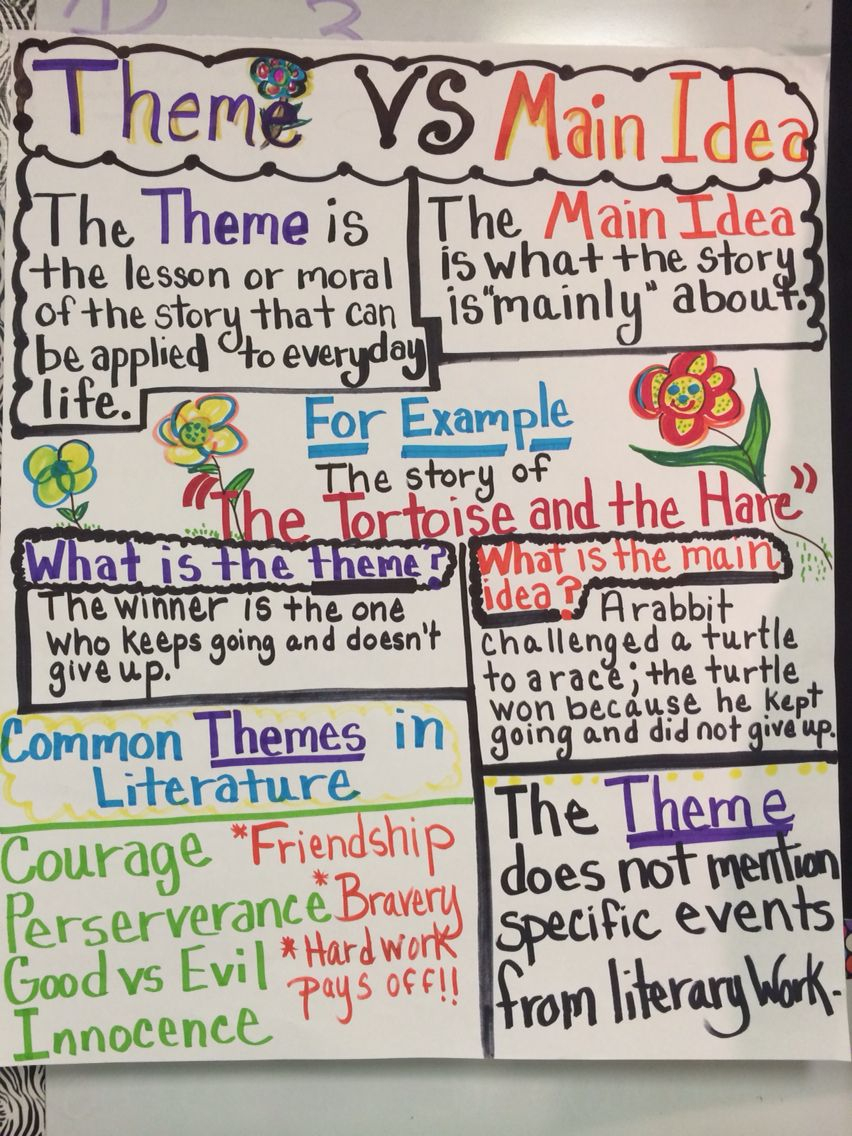 Theme VS Main Idea
The Theme is
the lesson or moral
of the story that can
be applied to everyday
life.
The Main Idea
is what the story
is "mainly" about.
For Example
The story of
"The Tortoise and the Hare"
What is the theme?
The winner is the one
who keeps going and doesn't
give up.
What is the main
idea? A rabbit
challenged a turtle
to a race; the turtle
won because he kept
going and did not give up.
Common Themes in
Literature
Courage
Perserverance
Good vs Evil
Innocence
*Friendship
*Bravery
*Hard work
pays off!!
The Theme
does not mention
specific events
from literary Work.